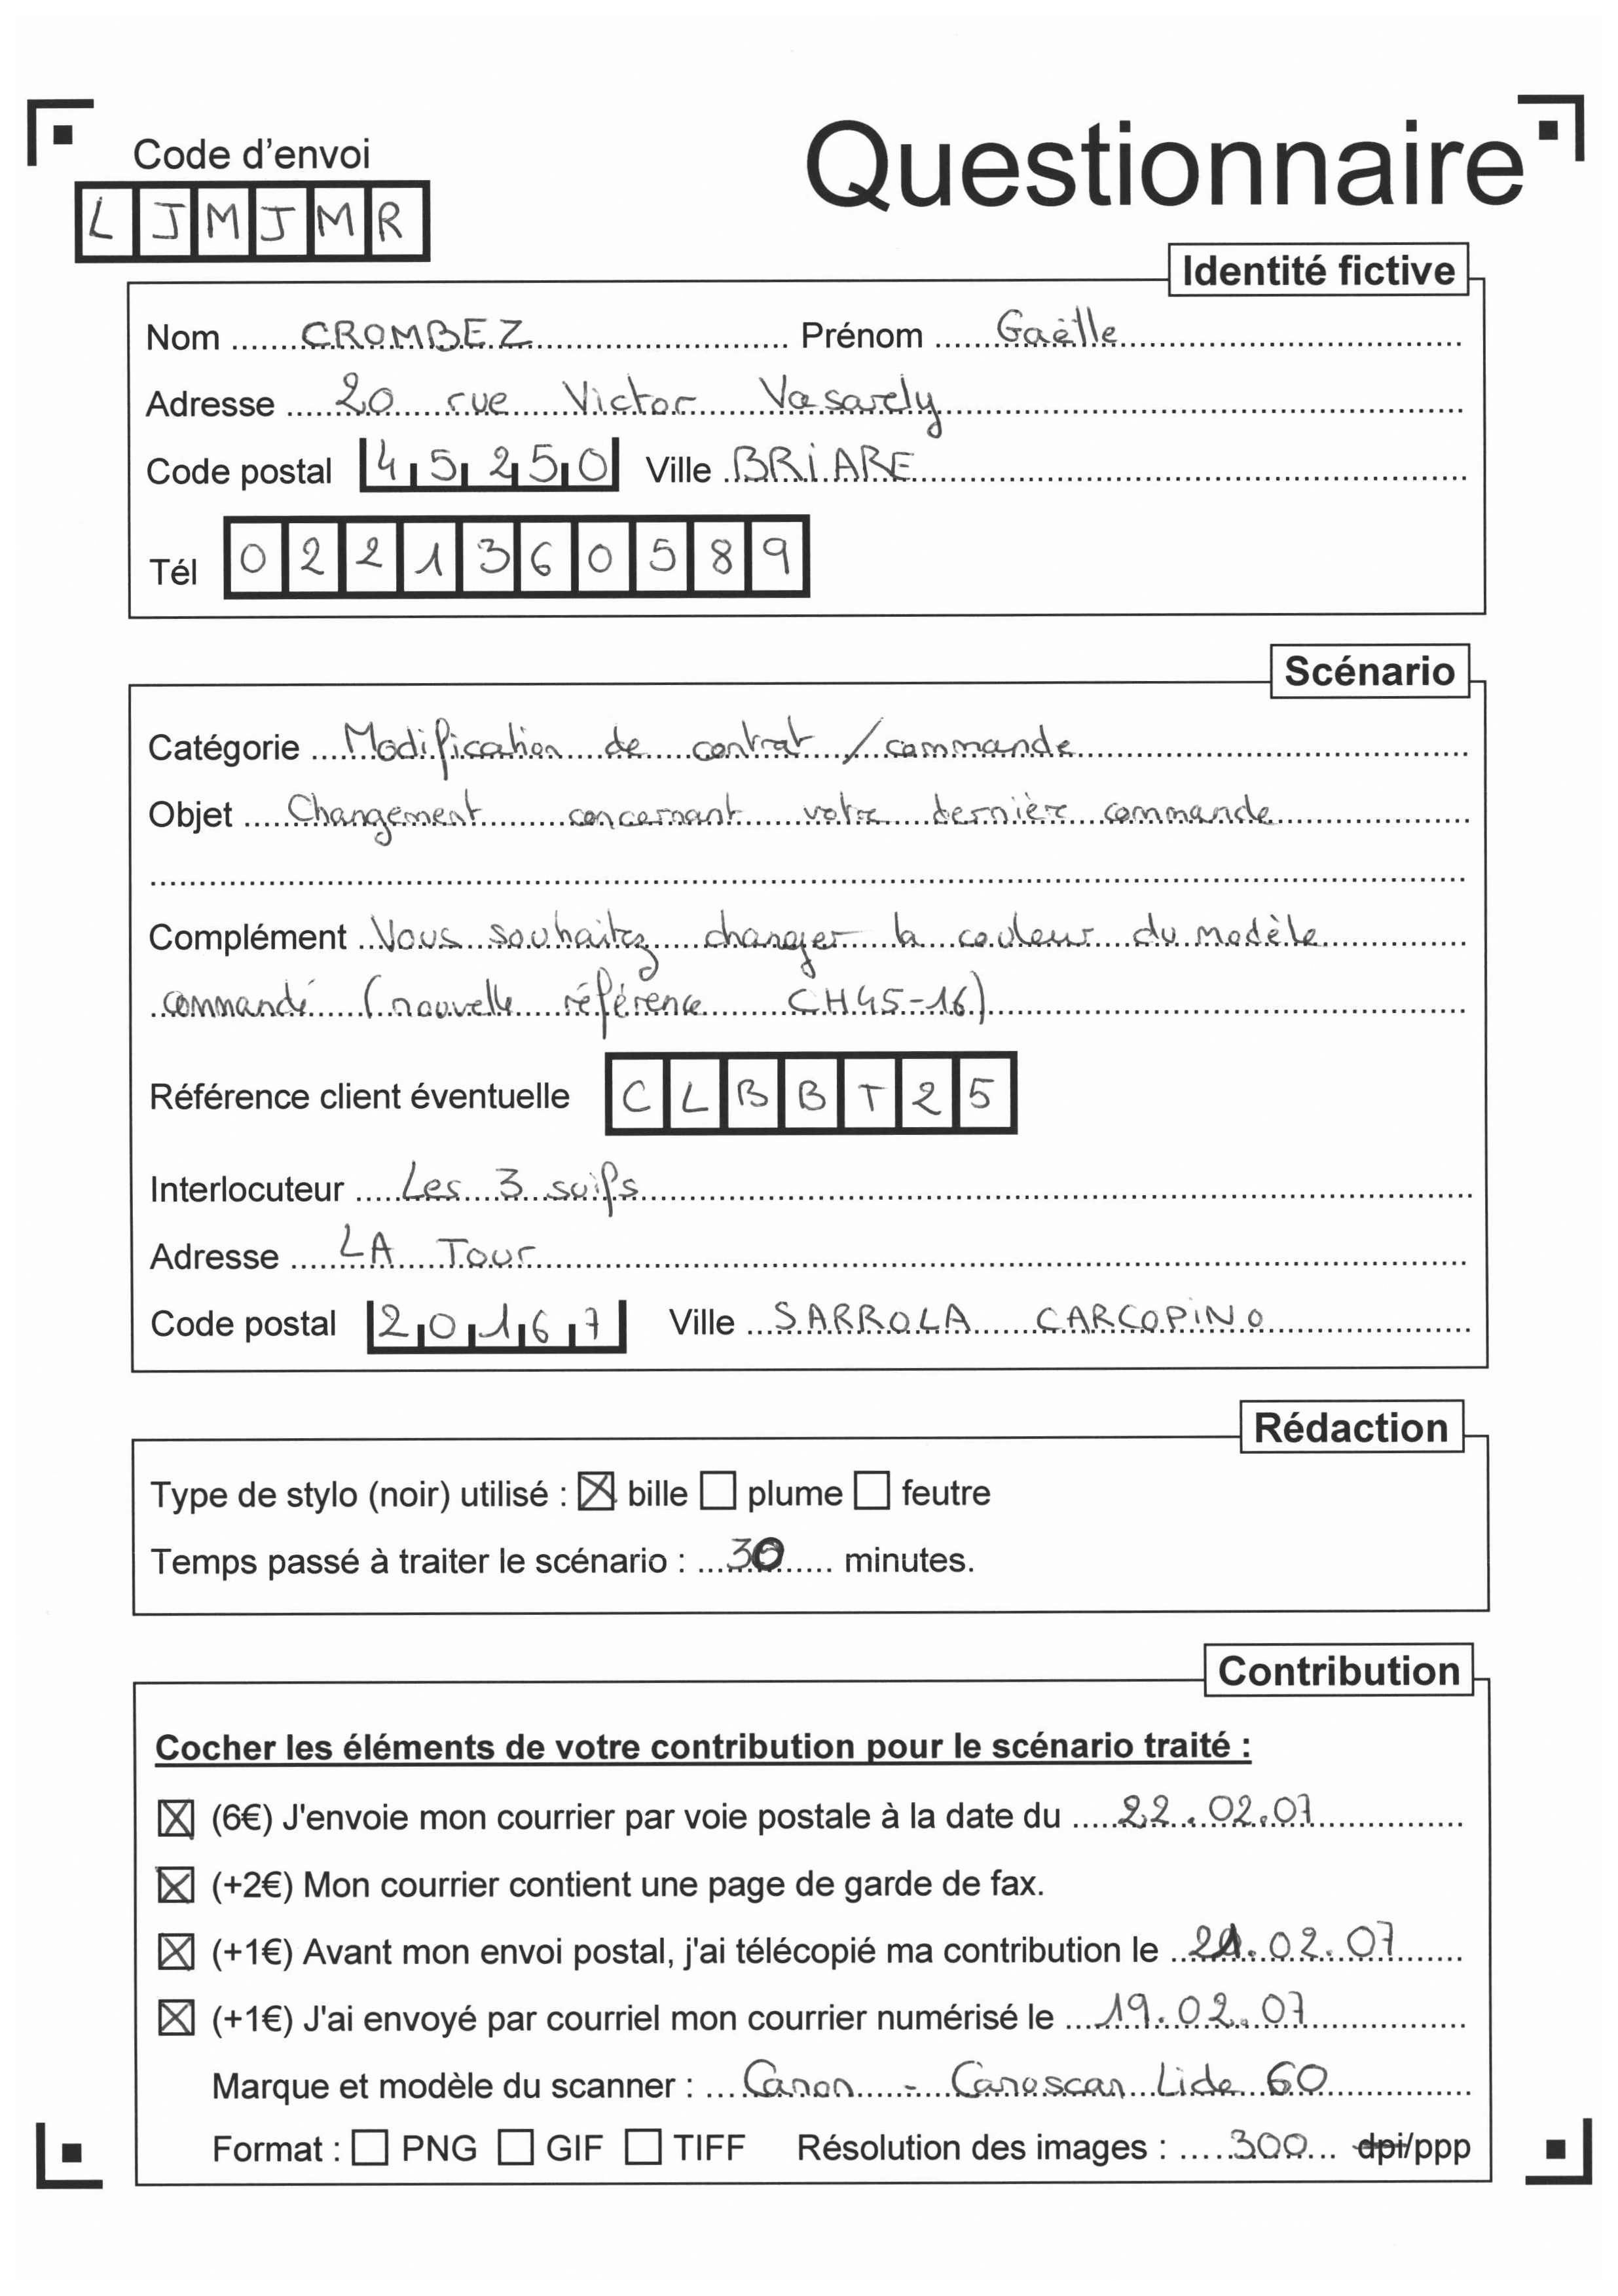 Code d'envoi
Questionnaire
LJMJMR
Identité fictive
Nom CROMBEZ Prénom Gaëlle
Adresse 20 rue Victor Vasarely
Code postal 45250 Ville BRIARE
Tél 0221360589
Scénario
Catégorie Modification de contrat / commande
Objet Changement concernant votre dernière commande
Complément Vous souhaitez changer la couleur du modèle
commandé (nouvelle référence CH45-16)
Référence client éventuelle CLBBT25
Interlocuteur Les 3 suifs
Adresse LA Tour
Code postal 20167 Ville SARROLA CARCOPINO
Rédaction
Type de stylo (noir) utilisé : ☒ bille ☐ plume ☐ feutre
Temps passé à traiter le scénario : 30 minutes.
Contribution
Cocher les éléments de votre contribution pour le scénario traité :
☒ (6€) J'envoie mon courrier par voie postale à la date du 22.02.07
☒ (+2€) Mon courrier contient une page de garde de fax.
☒ (+1€) Avant mon envoi postal, j'ai télécopié ma contribution le 21.02.07
☒ (+1€) J'ai envoyé par courriel mon courrier numérisé le 19.02.07
Marque et modèle du scanner : Canon - Canoscan Lide 60
Format : ☐ PNG ☐ GIF ☐ TIFF Résolution des images : 300 dpi/ppp